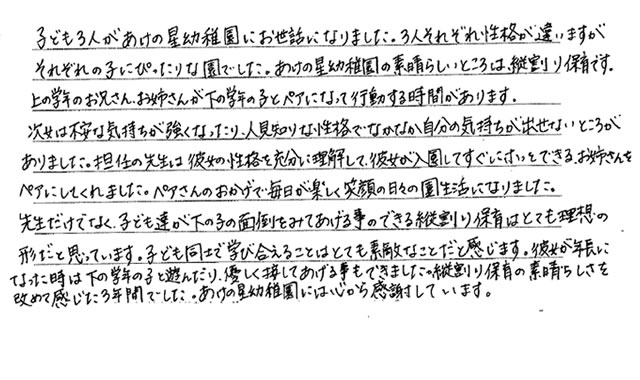 子ども3人があけの星幼稚園にお世話になりました。3人それぞれ性格が違いますが
それぞれの子にぴったりな園でした。あけの星幼稚園の素晴らしいところは、縦割り保育です。
上の学年のお兄さん、お姉さんが下の学年の子とペアになって行動する時間があります。
次女は不安な気持ちが強くなったり、人見知りな性格でなかなか自分の気持ちが出せないところが
ありました。担任の先生は彼女の性格を充分に理解して、彼女が入園してすぐにホッとできるお姉さんを
ペアにしてくれました。ペアさんのおかげで毎日が楽しく笑顔の日々の園生活になりました。
先生だけでなく、子ども達が下の子の面倒をみてあげる事のできる縦割り保育はとても理想の
形だと思っています。子ども同士で学び合えることはとても素敵なことだと感じます。彼女が年長に
なった時は下の学年の子と遊んだり、優しく接してあげる事もできました。縦割り保育の素晴らしさを
改めて感じた3年間でした。あけの星幼稚園には心から感謝しています。